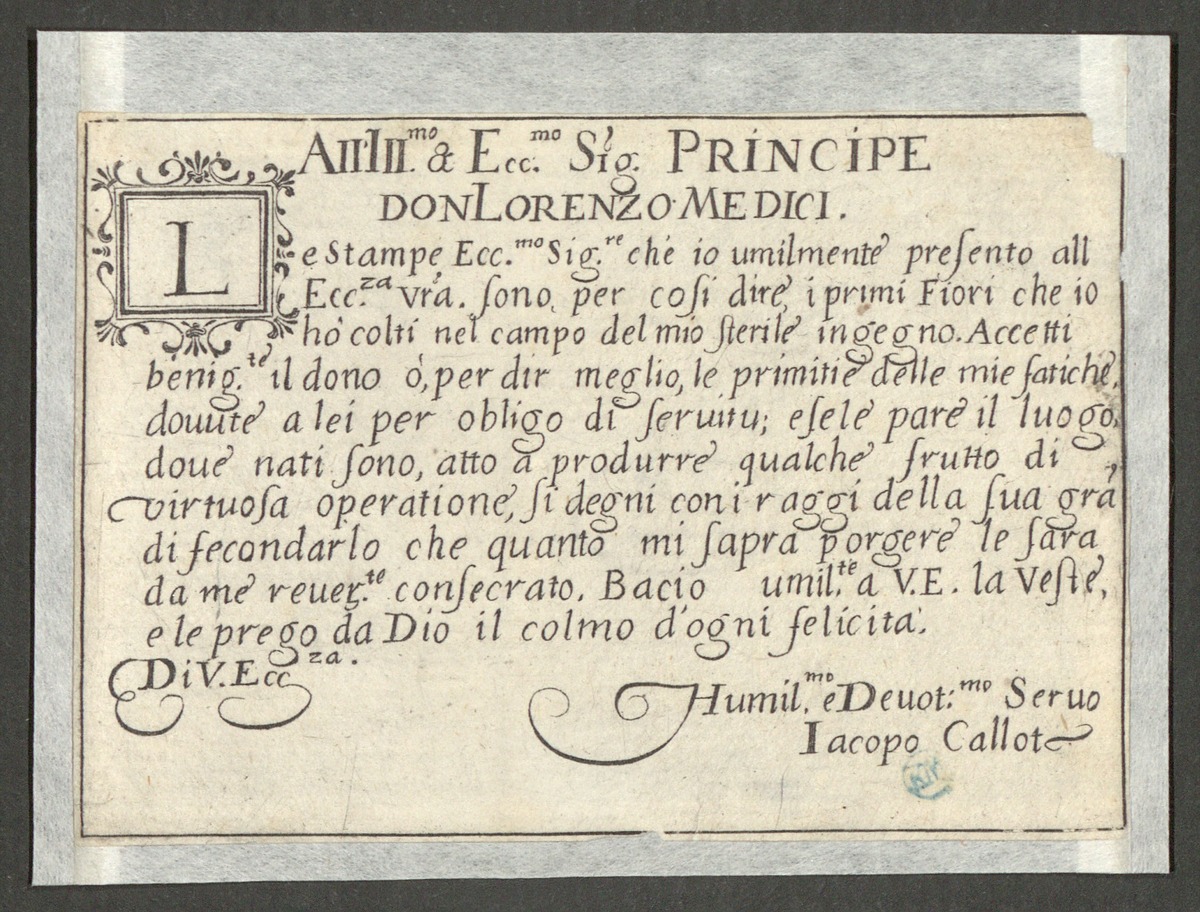 All'Ill.mo & Ecc.mo Sig.r PRINCIPE
DON LORENZO·MEDICI.
Le Stampe Ecc.mo Sig.re che io umilmente preſento all
Ecc.za vr̃a. ſono, per coſi dire, i primi Fiori che io
hò colti nel campo del mio ſterile ingegno. Accetti
benig.te il dono ò, per dir meglio, le primitie delle mie fatiche,
douute a lei per obligo di ſeruitu; e ſe le pare il luogo,
doue nati ſono, atto a produrre qualche frutto di
virtuoſa operatione, ſi degni con i raggi della ſua gr̃a
di fecondarlo che quanto mi ſapra porgere le ſara
da me reuer.te conſecrato. Bacio umil.te a V.E. la Veſte,
e le prego da Dio il colmo d'ogni felicità.
Di V. Ecc.za.
Humil.mo e Deuot:mo Seruo
Iacopo Callot